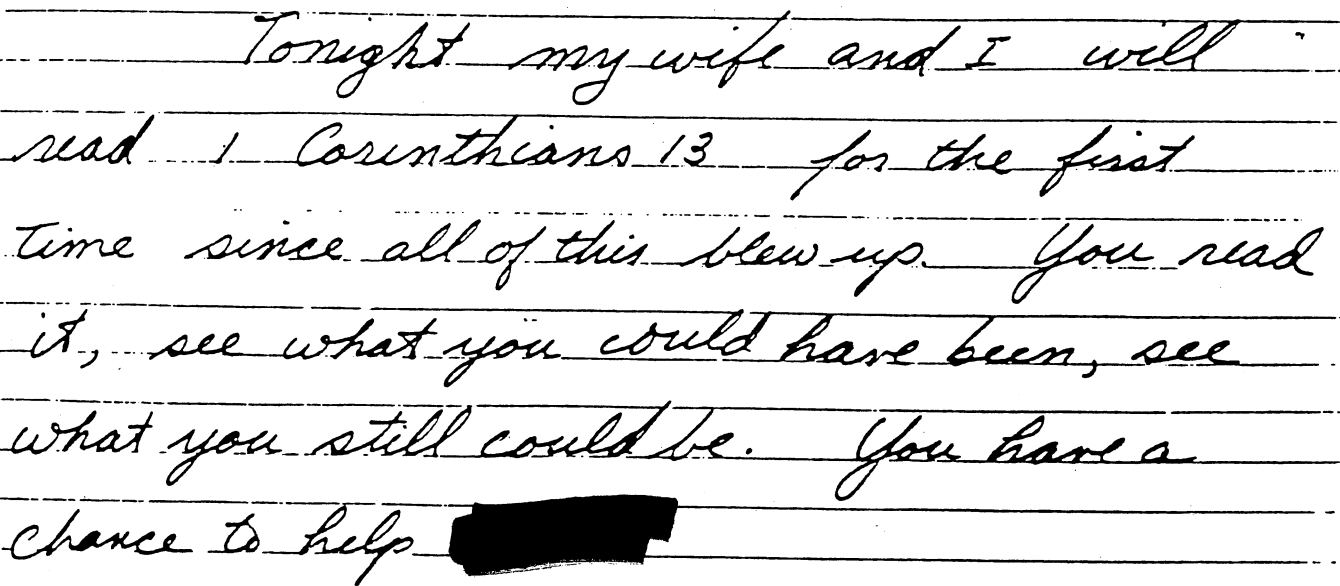 Tonight my wife and I will
read 1 Corinthians 13 for the first
time since all of this blew up. You read
it, see what you could have been, see
what you still could be. You have a
chance to help